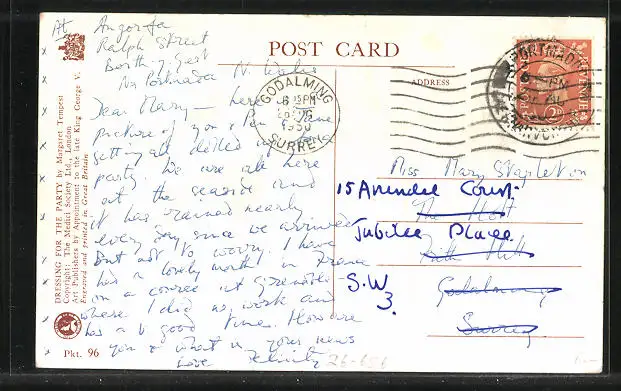 At Angorfa
Ralph Street
Borth-y-Gest
Nr Portmadoc N. Wales
Dear Mary — here is a
picture of you & Pa
getting all dolled up for a
party. We are all here
at the seaside and
it has rained nearly
every day since we arrived
but not to worry. I have
had a lovely month in France
on a course at Grenoble
where I did no work and
had a v good time. How are
you & what is your news
Love Felicity
POST CARD
ADDRESS
GODALMING
6 15 PM
1950
SURREY
PORTMADOC
PM
CAERNARVON
POSTAGE
REVENUE
Miss Mary Stapleton
15 Arundel Court
The Hoe
Jubilee Place
Frith Hill
S.W.3.
Godalming
Surrey
DRESSING FOR THE PARTY by Margaret Tempest
Copyright: The Medici Society Ltd., London
Art Publishers by Appointment to the late King George V.
Engraved and printed in Great Britain
Pkt. 96
26-656